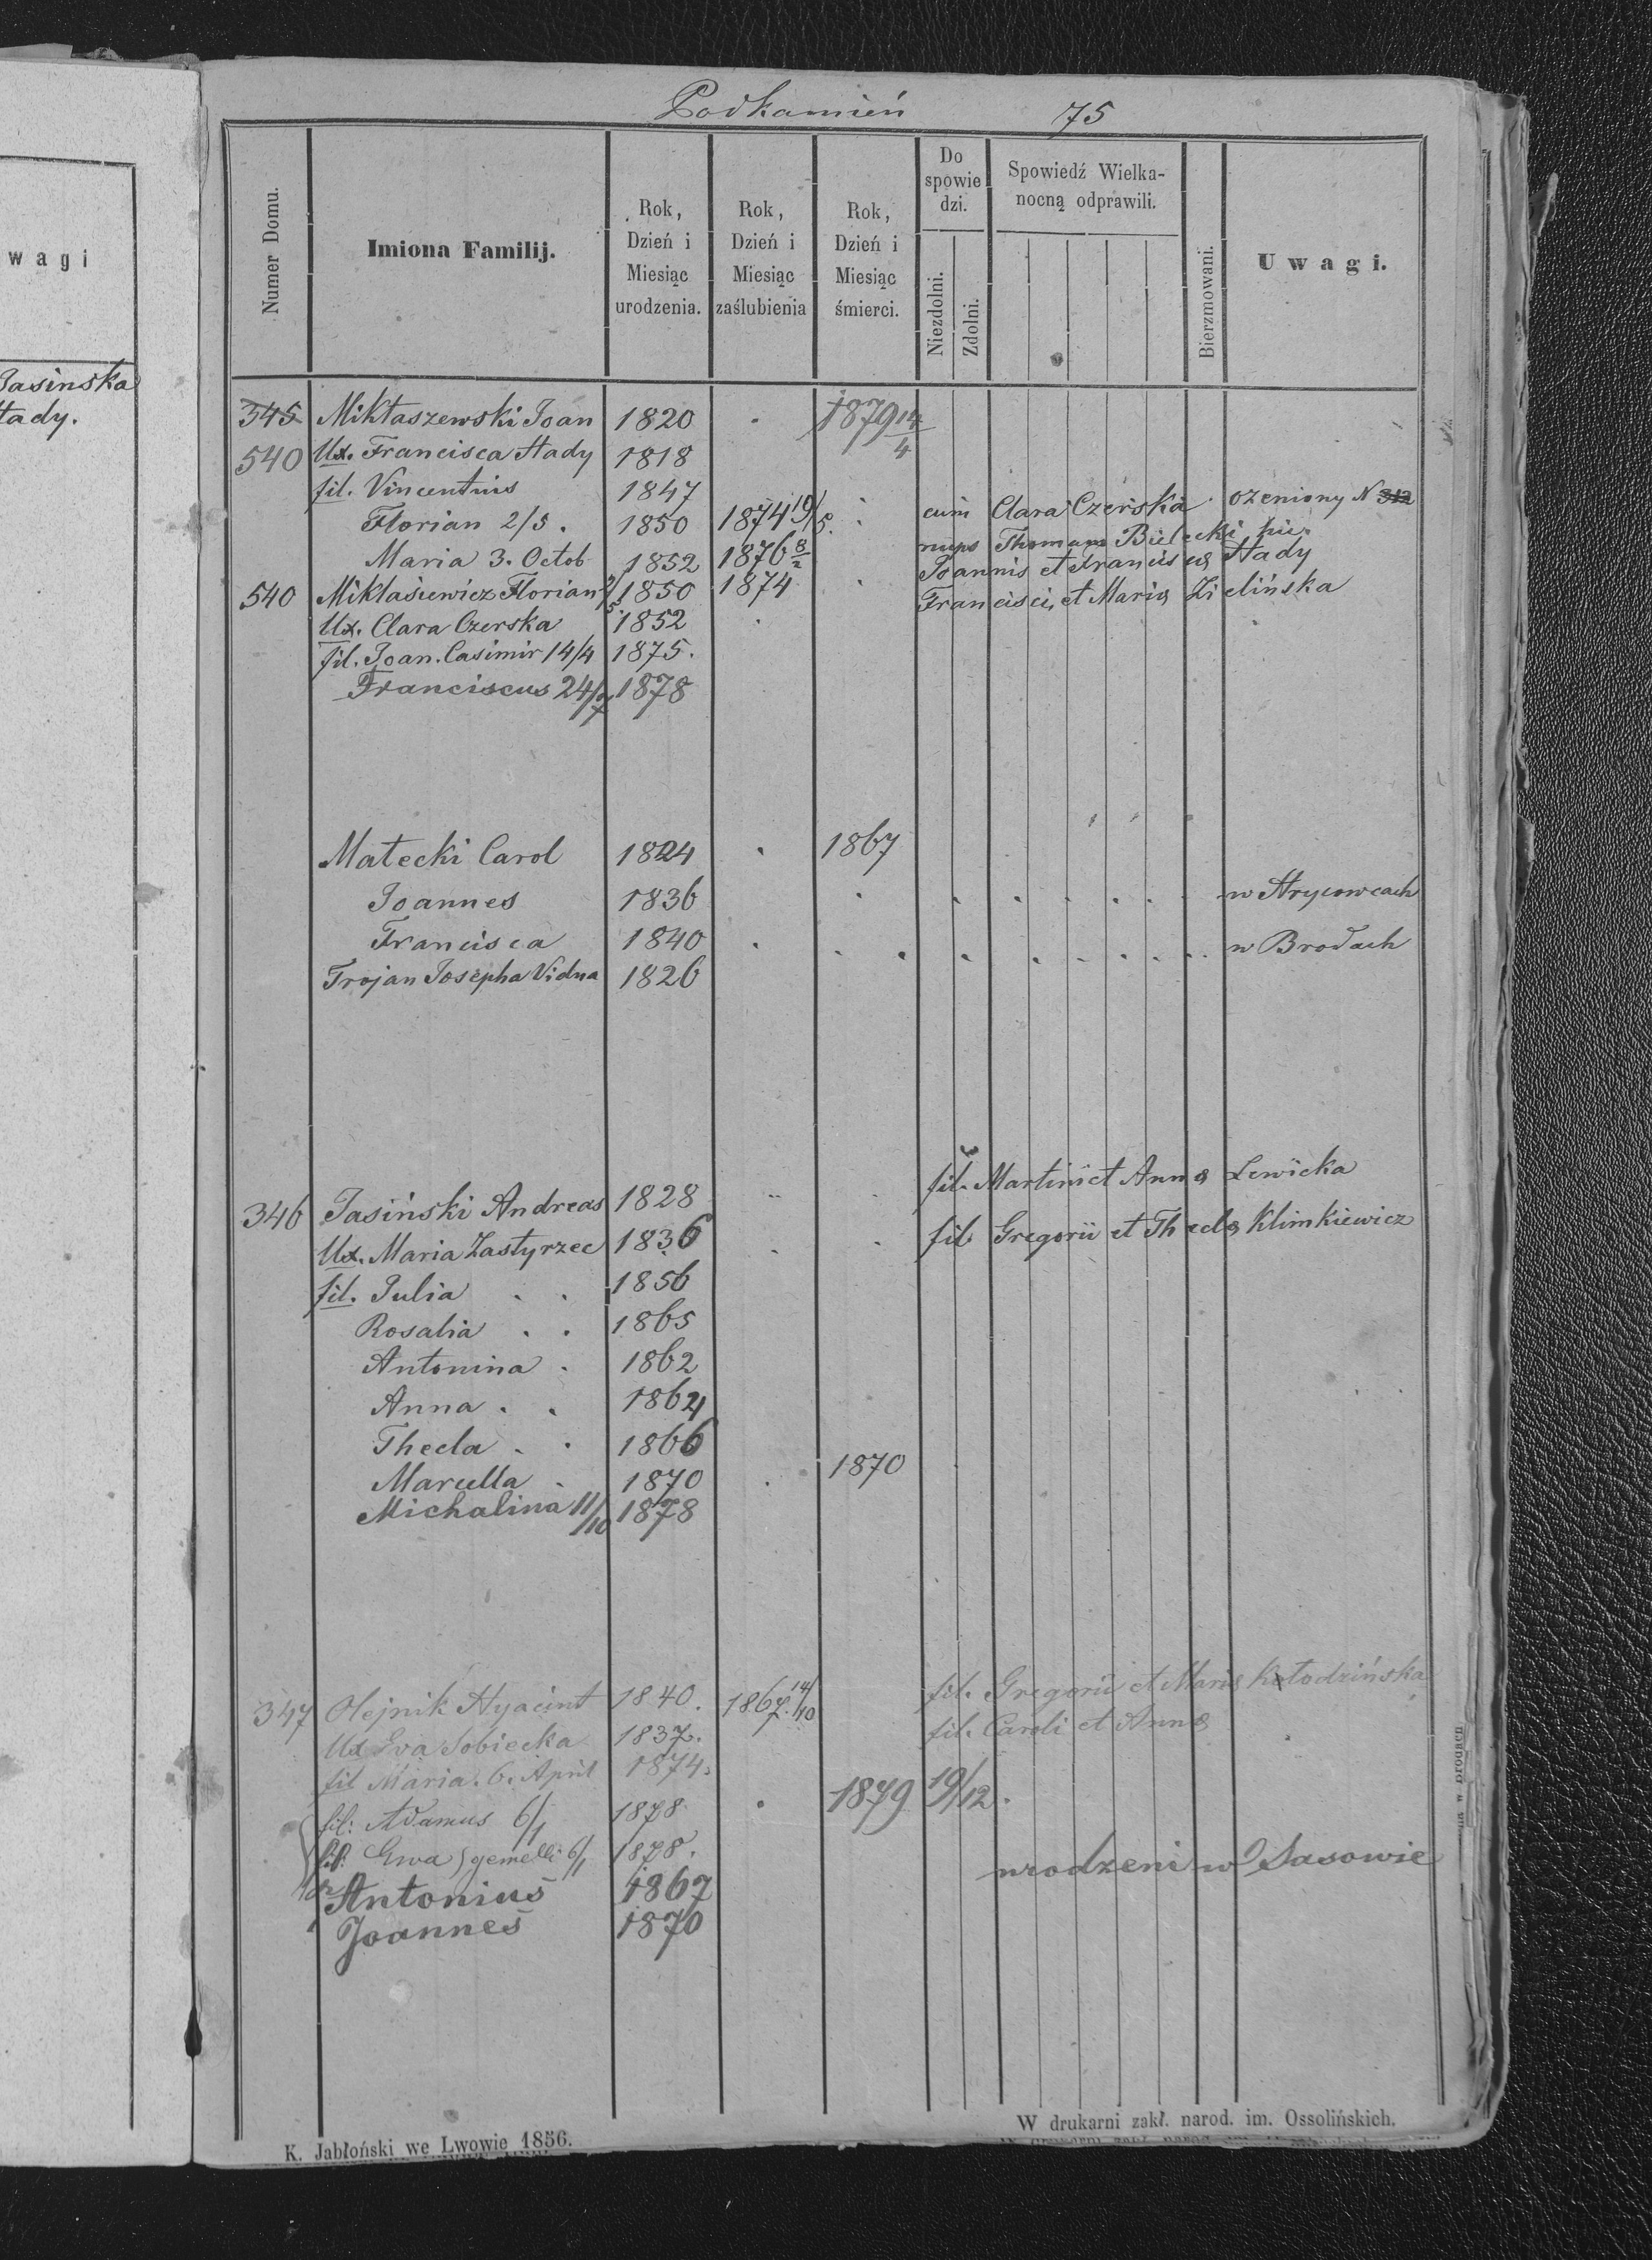 wagi
Jasinska
Hady.
Podkamień 75
Numer Domu.
Imiona Familij.
Rok, Dzień i Miesiąc urodzenia.
Rok, Dzień i Miesiąc zaślubienia
Rok, Dzień i Miesiąc śmierci.
Do spowie dzi.
Niezdolni.
Zdolni.
Spowiedź Wielka-
nocną odprawili.
Bierzmowani.
Uwagi.
345 Mikłaszewski Joan 1820 1879 14/4
540 Ux. Francisca Hady 1818
fil. Vincentius 1847
Florian 2/5. 1850 1874 19/5. cum Clara Czerska ożeniony N 312
Maria 3. Octob 1852 1876 8/2 nups Thomam Bielecki
Joannis et Francisca Hady
540 Miklasiewicz Florian 2/5 1850 1874 Francisci et Maria Zielińska
Ux. Clara Czerska 1852
fil. Joan. Casimir 14/4 1875.
Franciscus 24/7 1878
Małecki Carol 1824 1867
Joannes 1836 w Hrycowcach
Francisca 1840 w Brodach
Trojan Josepha Vidua 1826
346 Jasiński Andreas 1828 fil. Martini et Anna Lewicka
Ux. Maria Zastyrzec 1836 fil Gregorii et Thecla Klimkiewicz
fil. Julia 1856
Rosalia 1865
Antonina 1862
Anna 1864
Thecla 1866
Marcella 1870 1870
Michalina 11/10 1878
347 Olejnik Hyacint 1840. 1867. 14/10 fil. Gregorii et Maria Kołodzińska
Ux Eva Sobiecka 1837. fil. Caroli et Anna
fil Maria. 6. April 1874.
fil: Adamus 6/1 1878 1879 19/12.
fil: Ewa gemelli 6/1 1878.
Antonius 1867 urodzeni w Sasowie
Joannes 1870
K. Jabłoński we Lwowie 1856.
W drukarni zakł. narod. im. Ossolińskich.